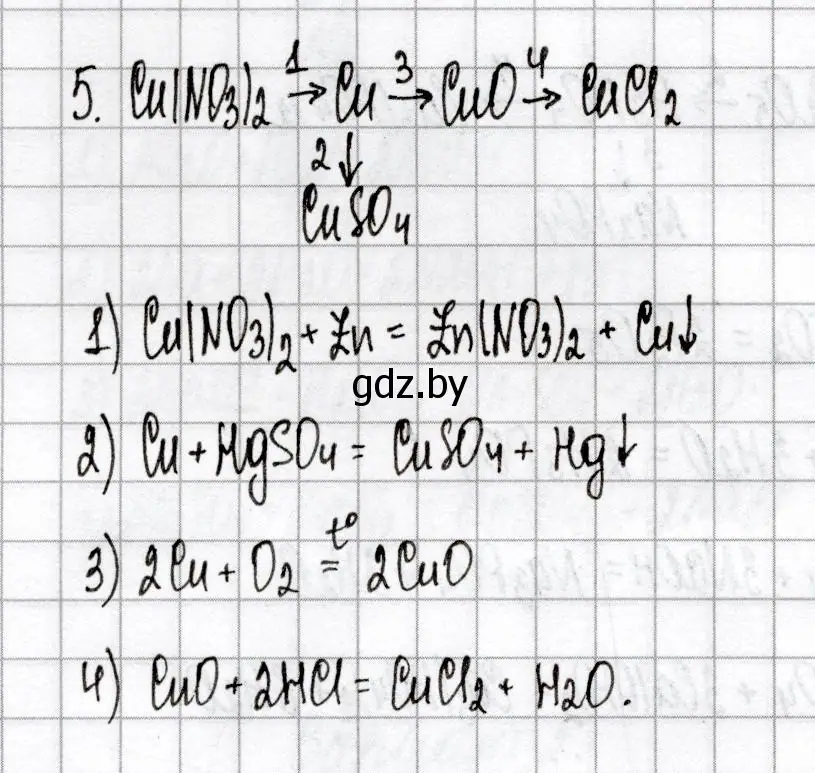 5. Cu(NO3)2 1→ Cu 3→ CuO 4→ CuCl2
2↓
CuSO4
1) Cu(NO3)2 + Zn = Zn(NO3)2 + Cu↓
gdz.by
2) Cu + HgSO4 = CuSO4 + Hg↓
3) 2Cu + O2 t°= 2CuO
4) CuO + 2HCl = CuCl2 + H2O.